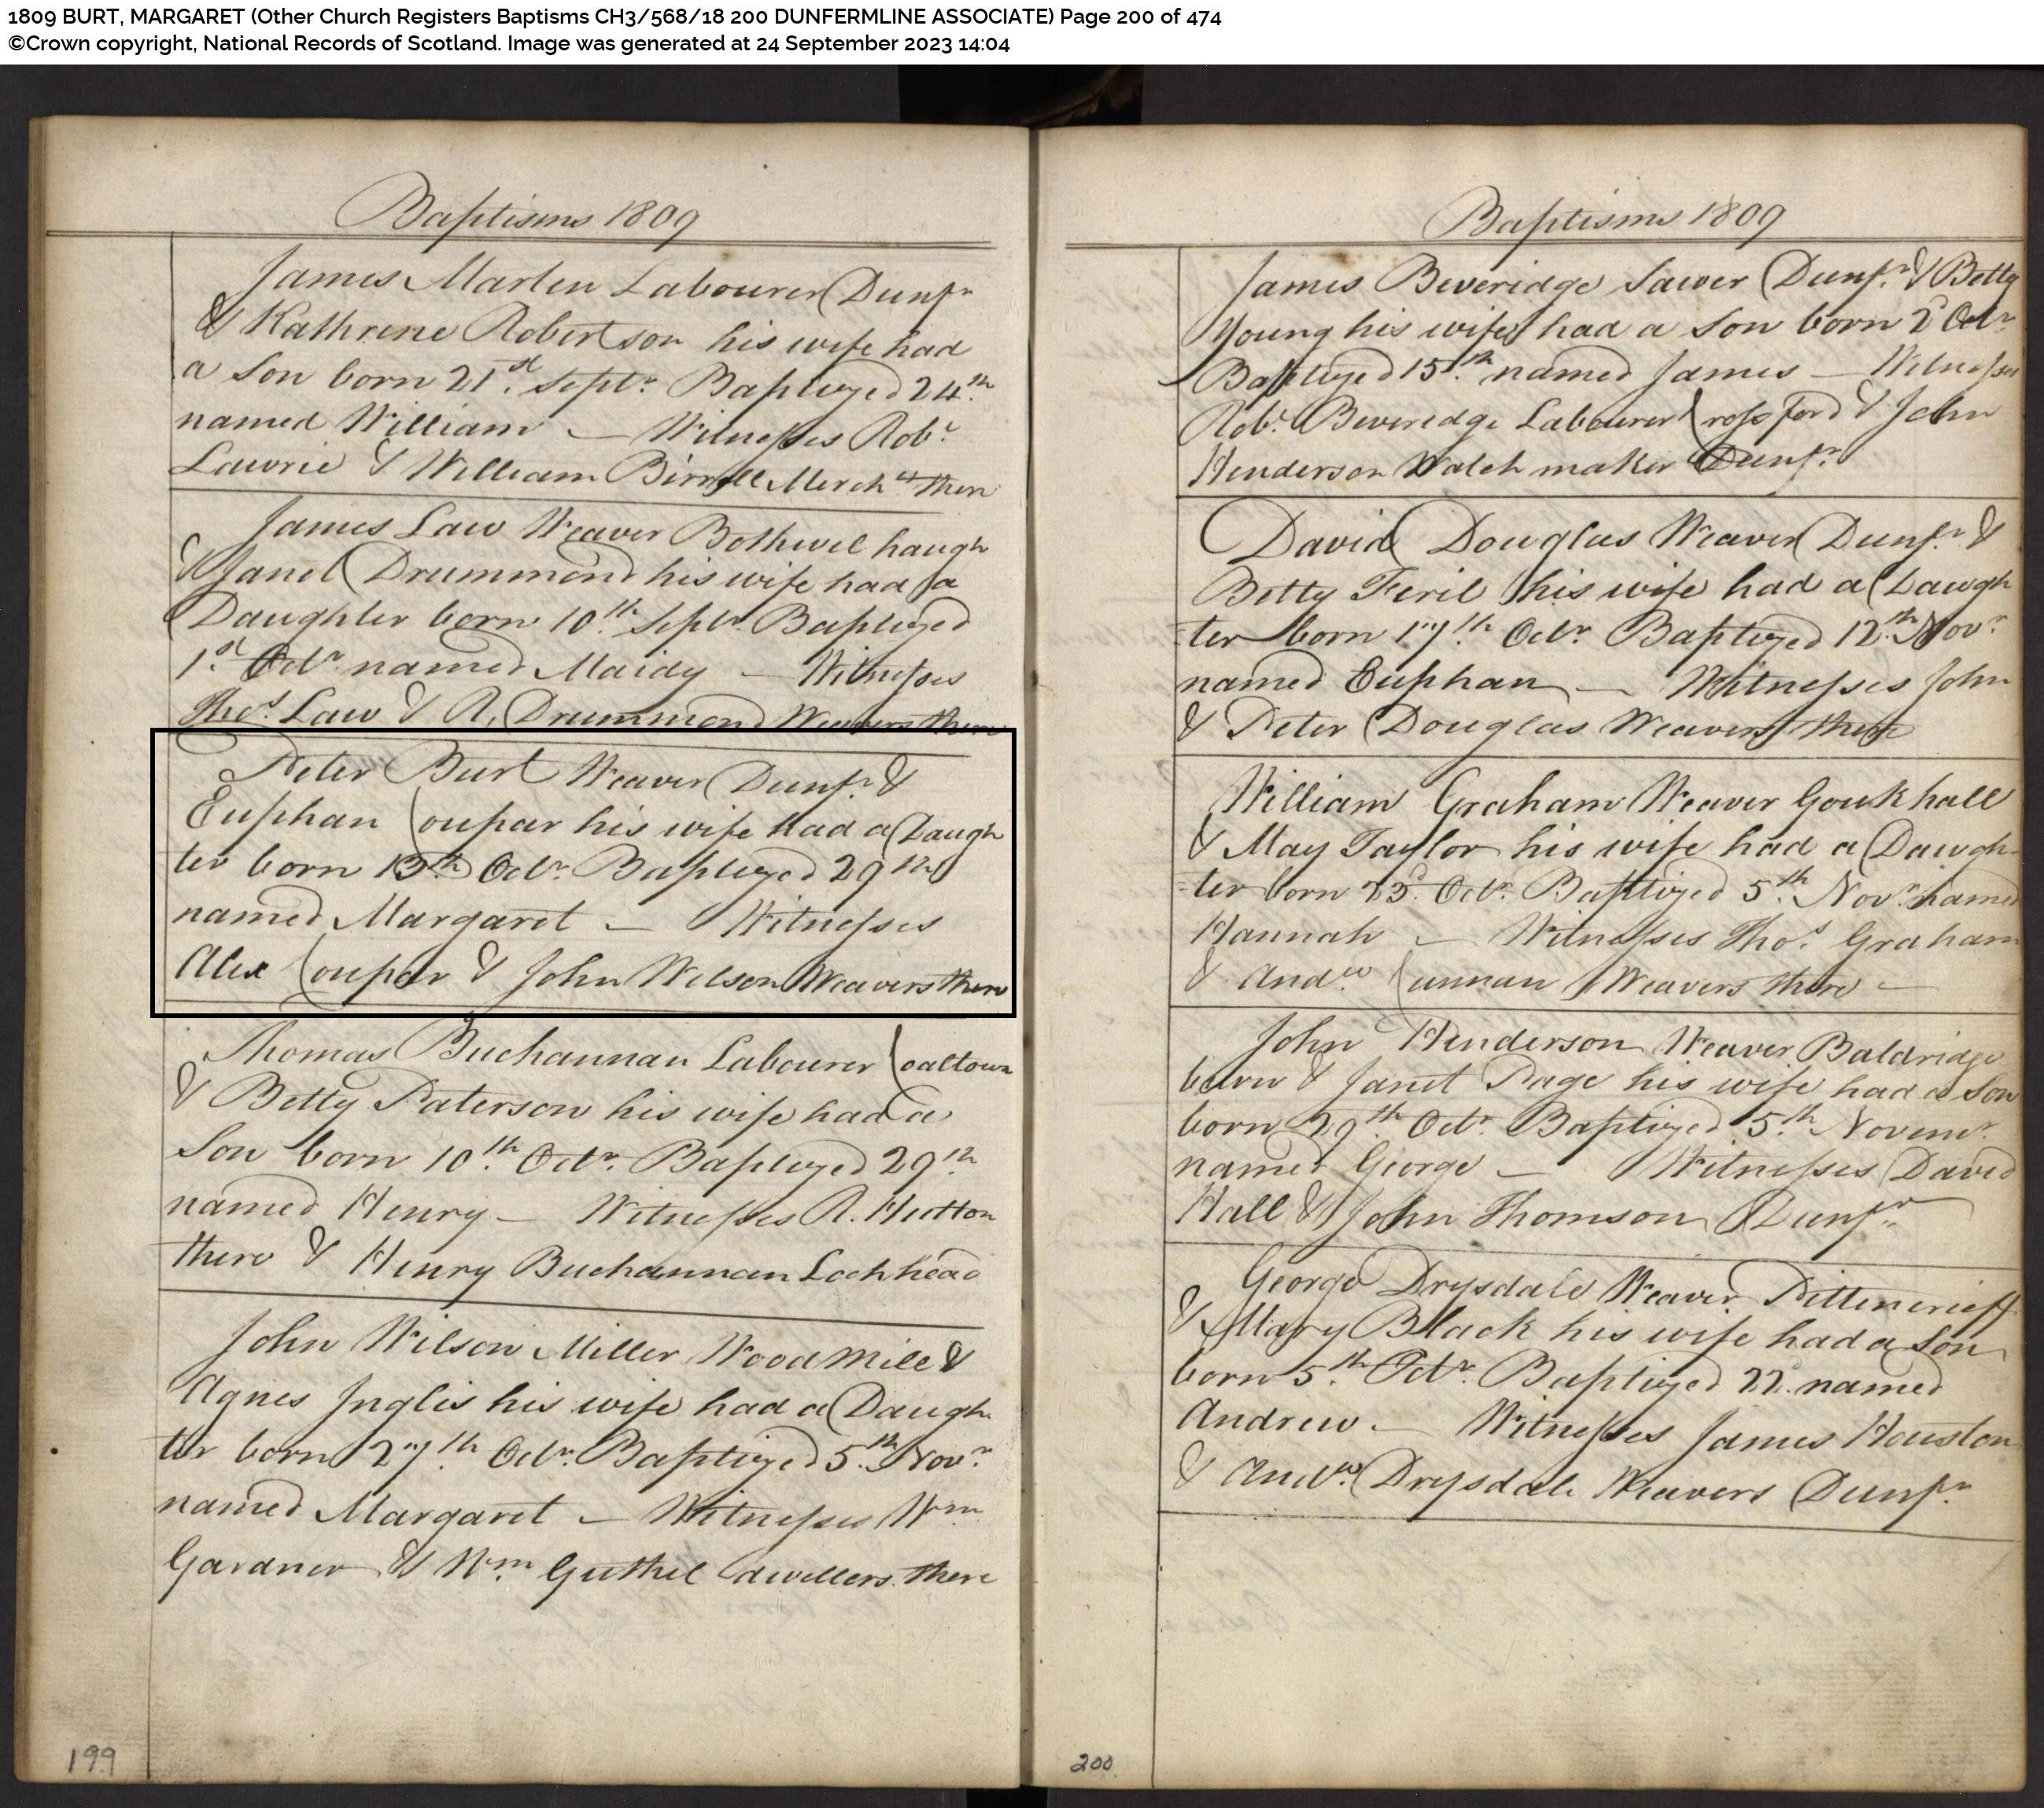 1809 BURT, MARGARET (Other Church Registers Baptisms CH3/568/18 200 DUNFERMLINE ASSOCIATE) Page 200 of 474
©Crown copyright, National Records of Scotland. Image was generated at 24 September 2023 14:04
Baptisms 1809
James Marlen Labourer Dunfr
& Kathrine Robertson his wife had
a Son born 21st Septr Baptized 24th
named William — Witnesses Robt
Lawrie & William Birrell Merchts there
James Law Weaver Bothwel haugh
& Janet Drummond his wife had a
Daughter born 10th Septr Baptized
1st Octr named Maidy — Witnesses
Thos Law & A. Drummond Weavers there
Peter Burt Weaver Dunfr &
Euphan Coupar his wife had a Daugh
ter born 13th Octr Baptized 29th
named Margaret — Witnesses
Alex Coupar & John Wilson Weavers there
Thomas Buchannan Labourer Coaltown
& Betty Paterson his wife had a
Son born 10th Octr Baptized 29th
named Henry — Witnesses R. Hutton
there & Henry Buchannan Lochhead
John Wilson Miller Wood Mill &
Agnes Inglis his wife had a Daugh
ter born 27th Octr Baptized 5th Novr
named Margaret — Witnesses Wm
Gardner & Wm Guthel dwellers there
199
Baptisms 1809
James Beveridge Sawer Dunfr & Betty
Young his wife had a Son born 2d Octr
Baptized 15th named James — Witnesses
Robt Beveredge Labourer Crossford & John
Henderson Watch maker Dunfr
David Douglas Weaver Dunfr &
Betty Feril his wife had a Daugh
ter born 17th Octr Baptized 12th Novr
named Euphan — Witnesses John
& Peter Douglas Weavers there
William Graham Weaver Goukhall
& May Taylor his wife had a Daugh-
-ter born 23d Octr Baptized 5th Novr named
Hannah — Witnesses Thos Graham
& Andw Cunnan Weavers there —
John Henderson Weaver Baldridge
burn & Janet Page his wife had a Son
born 29th Octr Baptized 5th Novemr
named George — Witnesses David
Hall & John Thomson Dunfr
George Drysdale Weaver Pittencrieff
& Mary Black his wife had a Son
born 5th Octr Baptized 22d named
Andrew — Witnesses James Houston
& Andw Drysdale Weavers Dunfr
200